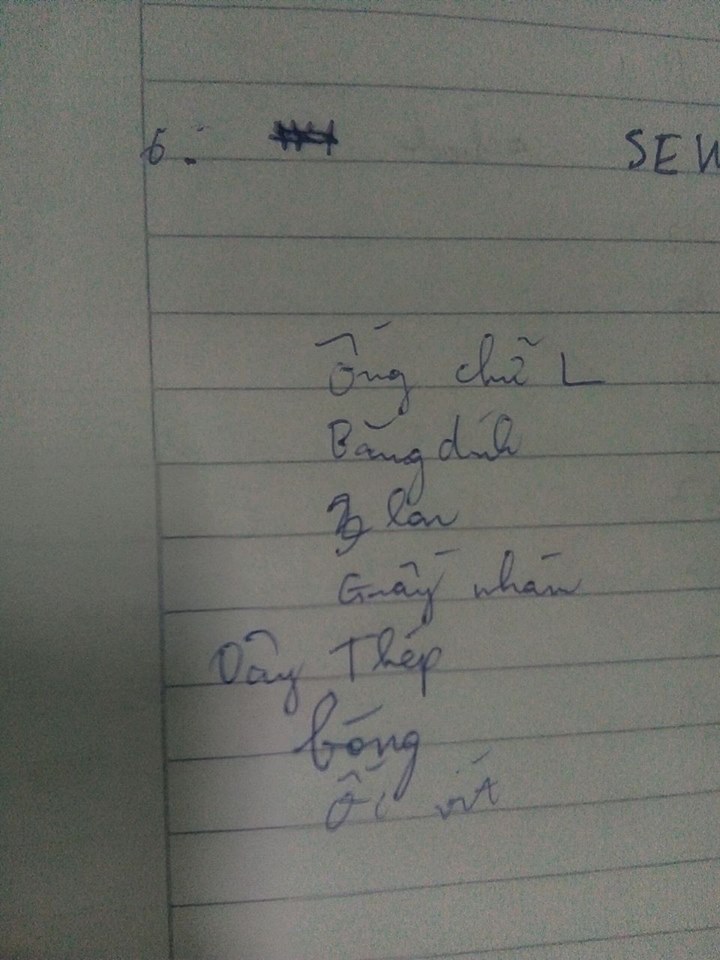 6: SEW
Ống chữ L
Băng dính
lon
Giấy nhám
Dây Thép
bóng
Ốc vít